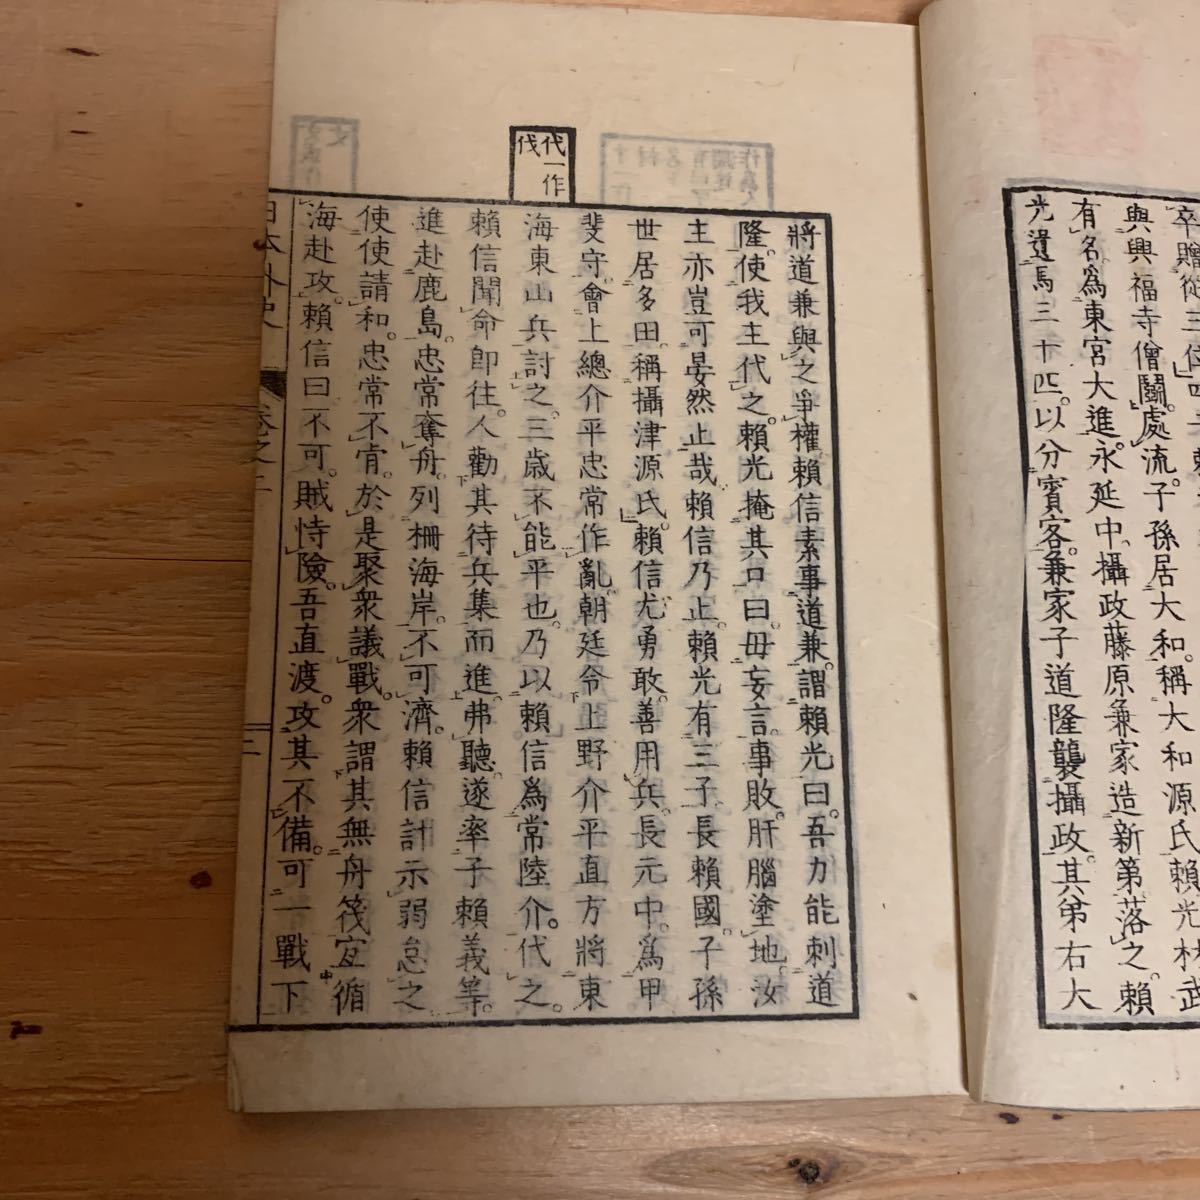 卒贈從三位
與興福寺僧鬭。處流。子孫居大和。稱大和源氏。賴光材武
有名。爲東宮大進。永延中。攝政藤原兼家造新第落之。賴
光遺馬三十匹。以分賓客。兼家子道隆襲攝政。其弟右大
代一作
伐
將道兼與之爭權。賴信素事道兼。謂賴光曰。吾力能刺道
隆。使我主代之。賴光掩其口曰。毋妄言。事敗。肝腦塗地。汝
主亦豈可晏然止哉。賴信乃止。賴光有三子。長賴國。子孫
世居多田。稱攝津源氏。賴信尤勇敢。善用兵。長元中。爲甲
斐守。會上總介平忠常作亂。朝廷令上野介平直方將東
海東山兵討之。三歲不能平也。乃以賴信爲常陸介。代之。
賴信聞命卽往。人勸其待兵集而進。弗聽。遂率子賴義等。
進赴鹿島。忠常奪舟。列柵海岸。不可濟。賴信計示弱怠之
使使請和。忠常不肯。於是聚衆議戰。衆謂其無舟筏。宜循
海赴攻。賴信曰。不可。賊恃險。吾直渡。攻其不備。可一戰下
日本外史 卷之二 二